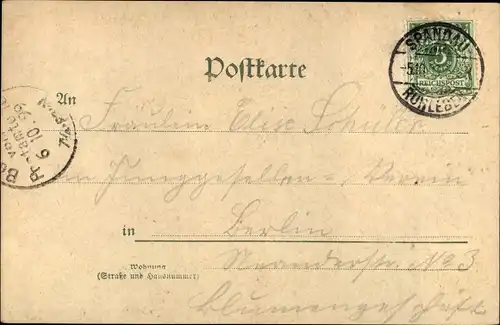 SPANDAU
5.10.
REICHSPOST
RUHLEBEN
Postkarte
An
Fräulein Elise Schüler
im Junggesellen-Verein
in Berlin
Neanderstr. No 3
Wohnung
(Straße und Hausnummer)
Blumengeschäft
6 10 99